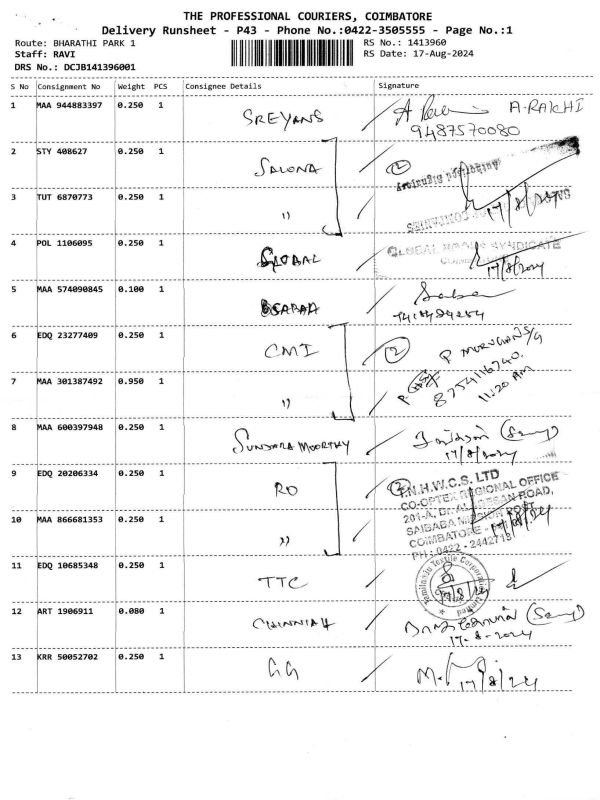 THE PROFESSIONAL COURIERS, COIMBATORE
Delivery Runsheet - P43 - Phone No.:0422-3505555 - Page No.:1
Route: BHARATHI PARK 1 RS No.: 1413960
Staff: RAVI RS Date: 17-Aug-2024
DRS No.: DCJB141396001
S No Consignment No Weight PCS Consignee Details Signature
1 MAA 944883397 0.250 1 SREYANS A. RAICHI
9487570080
2 STY 408627 0.250 1 SALONA 2
Authorised Signatory
3 TUT 6870773 0.250 1 " 17/8/2024
4 POL 1106095 0.250 1 GLOBAL GLOBAL SYNDICATE
17/8/2024
5 MAA 574090845 0.100 1 SABAH
6 EDQ 23277409 0.250 1 CMI 2 P MURUGAN
8754116740.
7 MAA 301387492 0.950 1 " 11:20 AM
8 MAA 600397948 0.250 1 SUNDARA MOORTHY
17/8/2024
9 EDQ 20206334 0.250 1 RO 2 T.N.H.W.C.S. LTD
CO-OPTEX REGIONAL OFFICE
201-A, ROAD,
10 MAA 866681353 0.250 1 " SAIBABA MISSION POST
COIMBATORE - 17/8/24
PH : 0422 - 2442718
11 EDQ 10685348 0.250 1 TTC Tamilnadu Textile Corporation Limited
17/8/24
12 ART 1906911 0.080 1 CHINNIAH
17-8-2024
13 KRR 50052702 0.250 1 GG 17/8/24